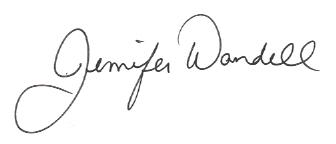 Jennifer Wandell